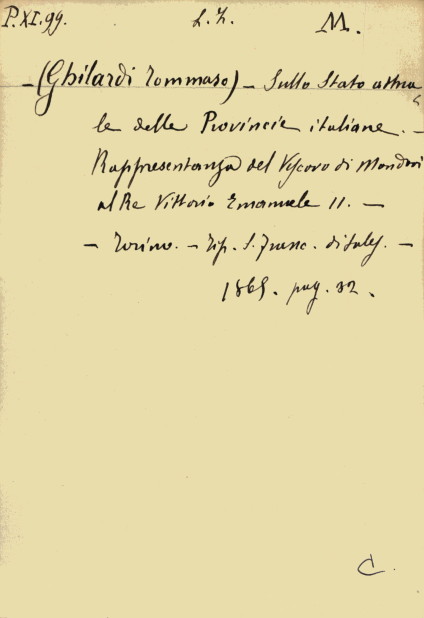 P.XI.99. L.Z. M.
- (Ghilardi Tommaso) - Sullo Stato attua
le delle Provincie italiane. -
Rappresentanza del Vescovo di Mondovì
al Re Vittorio Emanuele II. -
- Torino. - Tip. S. Franc. di Sales. -
1865. pag. 32.
C.